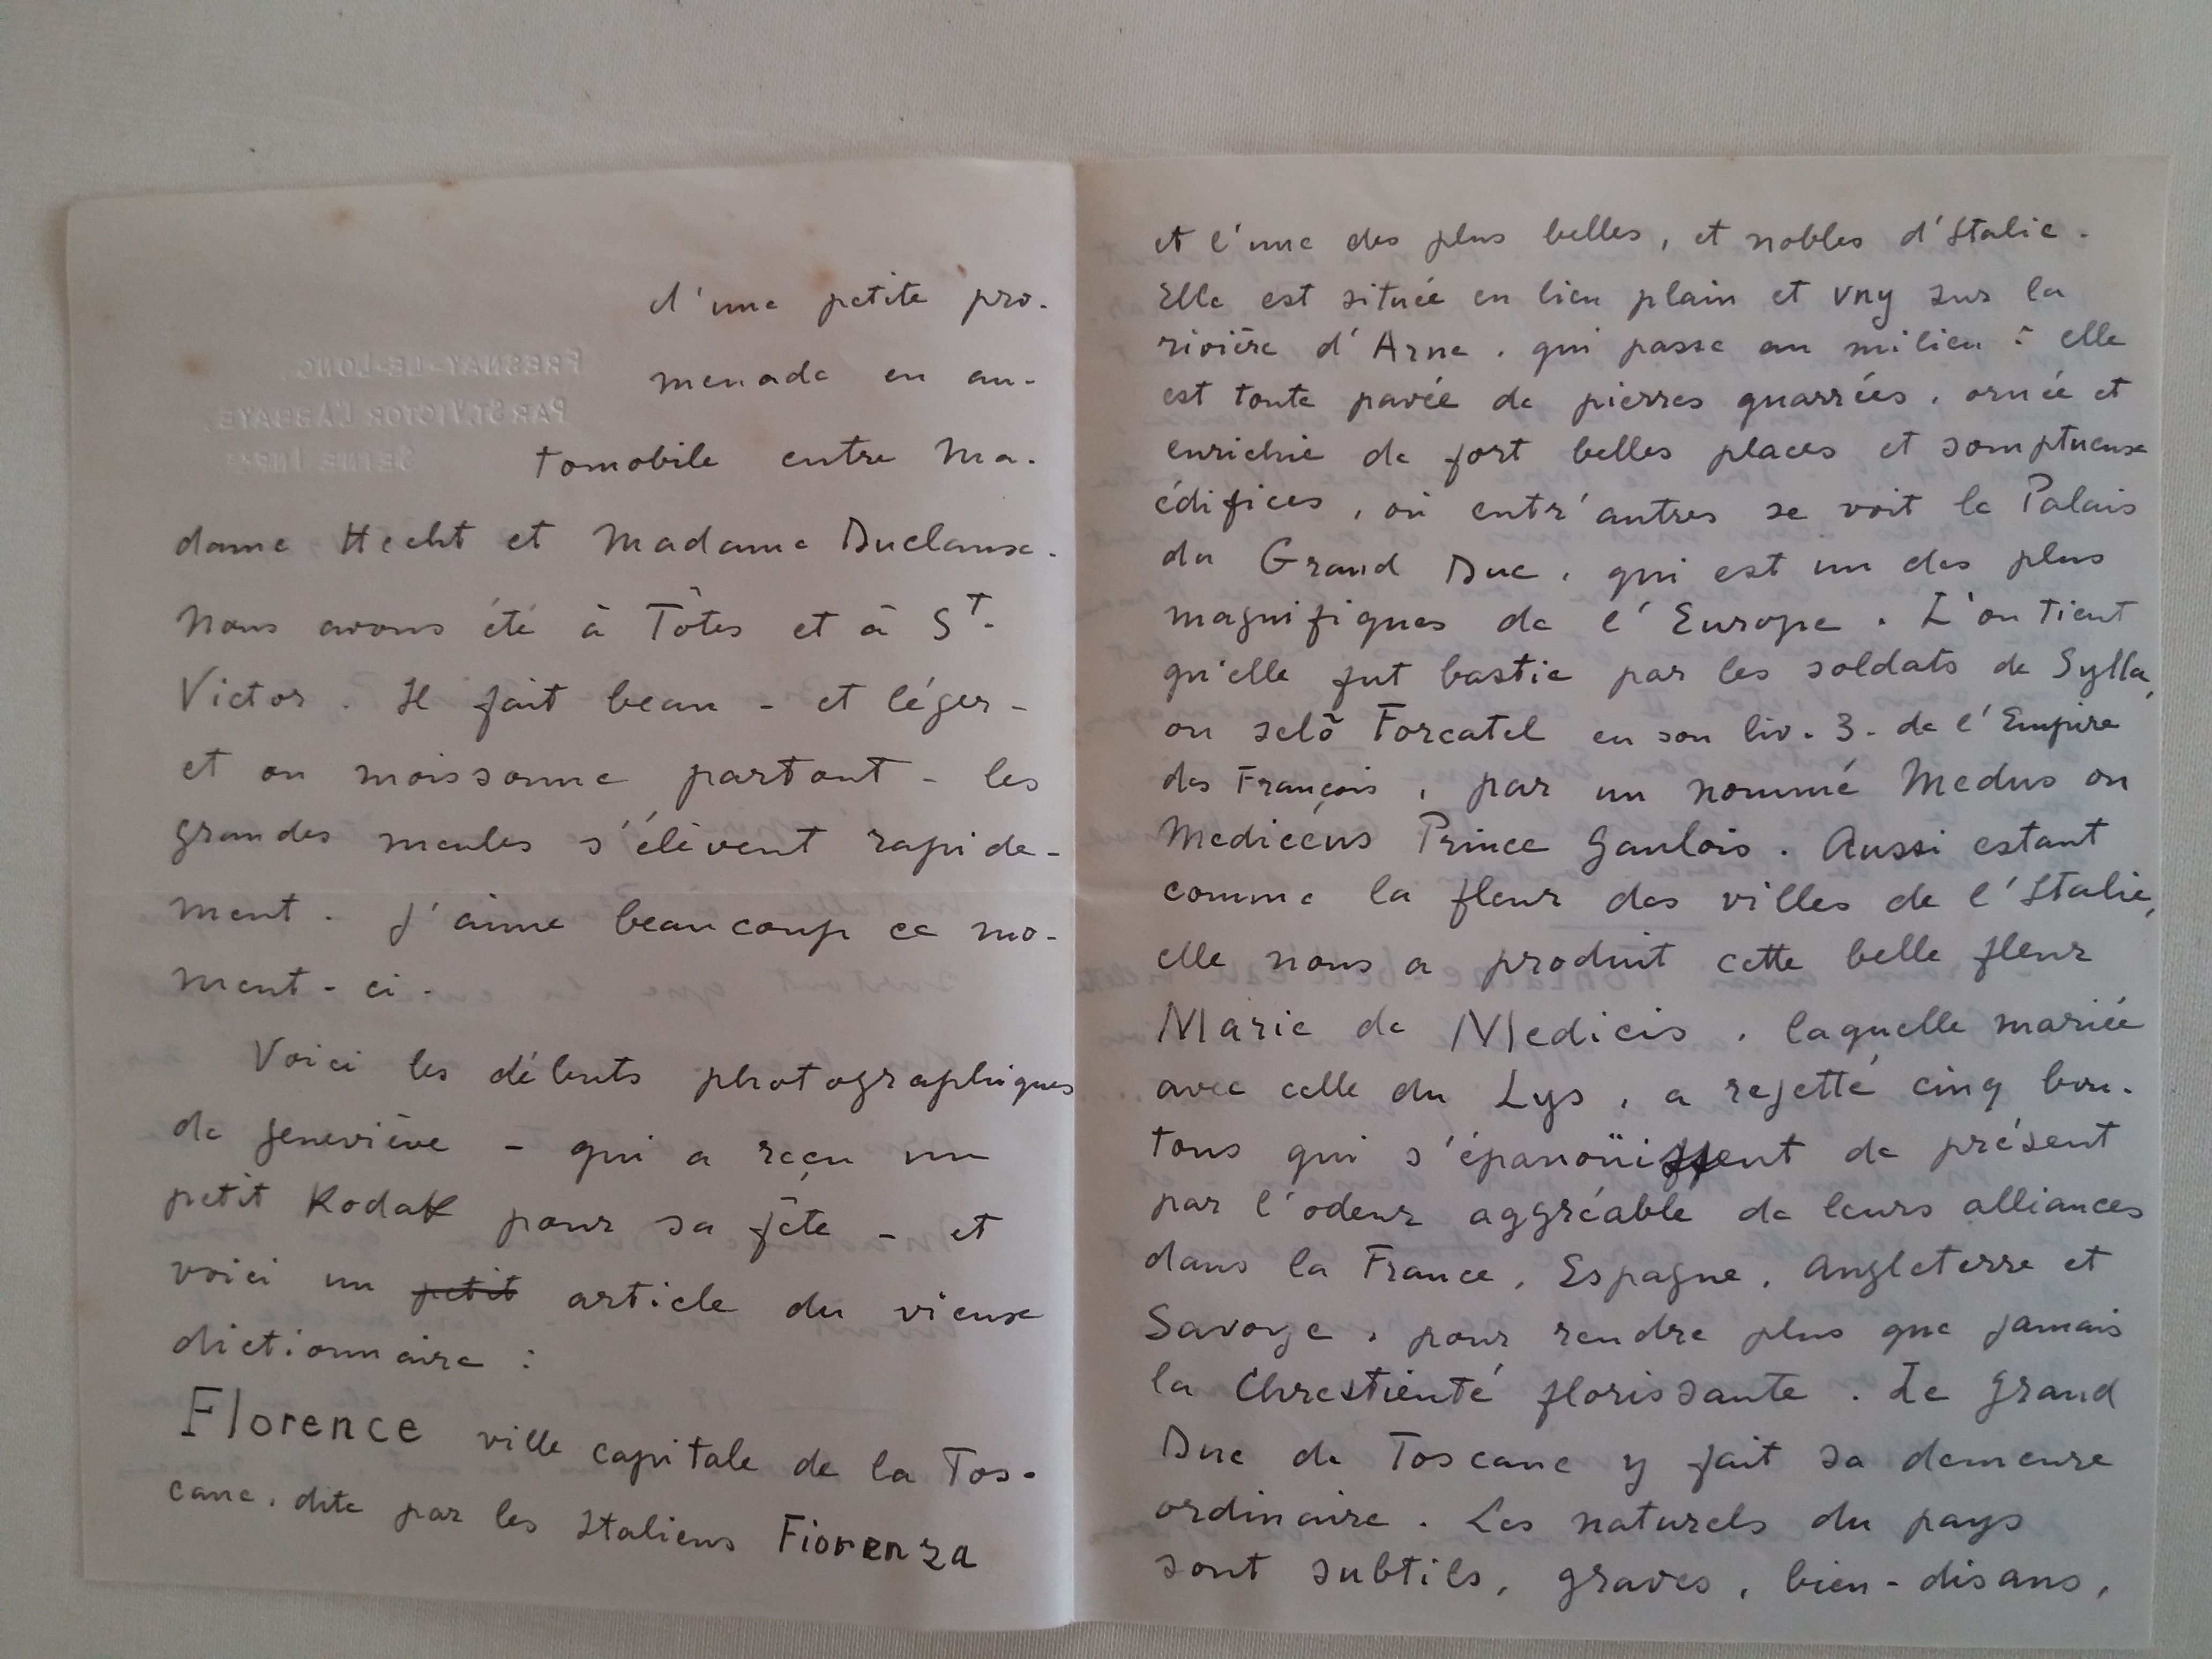 d'une petite pro-
menade en au-
tomobile entre Ma-
dame Hecht et Madame Duclaux.
Nous avons été à Tôtes et à St.
Victor. Il fait beau - et léger -
et on moissonne partout - les
grandes meules s'élèvent rapide-
ment. J'aime beaucoup ce mo-
ment-ci.
Voici les débuts photographiques
de Geneviève - qui a reçu un
petit Kodak pour sa fête - et
voici un petit article du vieux
dictionnaire :
Florence ville capitale de la Tos-
cane, dite par les Italiens Fiorenza
FRESNAY-LE-LONG
PAR ST. VICTOR L'ABBAYE,
SEINE INFRE
et l'une des plus belles, et nobles d'Italie.
Elle est située en lieu plain et vny sur la
rivière d'Arne, qui passe au milieu : elle
est toute pavée de pierres quarrées, ornée et
enrichie de fort belles places et somptueux
édifices, où entr'autres se voit le Palais
du Grand Duc, qui est un des plus
magnifiques de l'Europe. L'on tient
qu'elle fut bastie par les soldats de Sylla,
ou selõ Forcatel en son liv. 3. de l'Empire
des François, par un nommé Medus ou
Medicéus Prince Gaulois. Aussi estant
comme la fleur des villes de l'Italie,
elle nous a produit cette belle fleur
Marie de Medicis, laquelle mariée
avec celle du Lys, a rejetté cinq bou-
tons qui s'épanoüissent de présent
par l'odeur aggréable de leurs alliances
dans la France, Espagne, Angleterre et
Savoye, pour rendre plus que jamais
la Chrestienté florissante. Le Grand
Duc de Toscane y fait sa demeure
ordinaire. Les naturels du pays
sont subtils, graves, bien-disans,